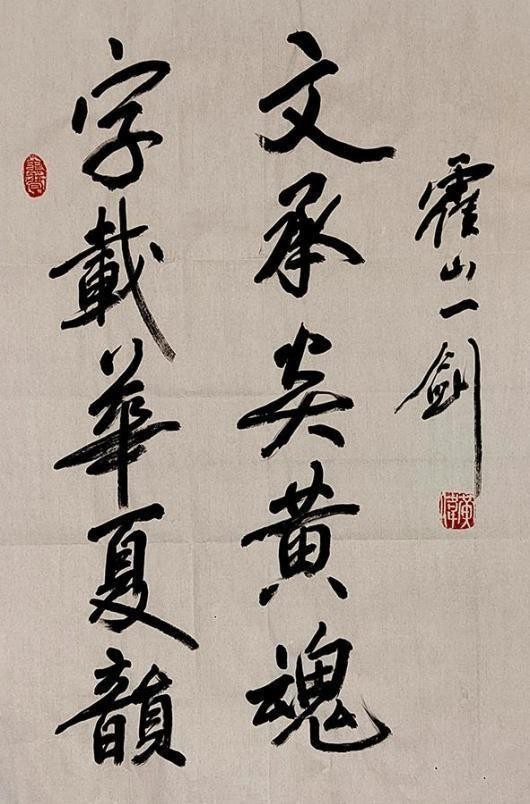 霍山一劍
黄偉
文承炎黄魂
字載華夏韻